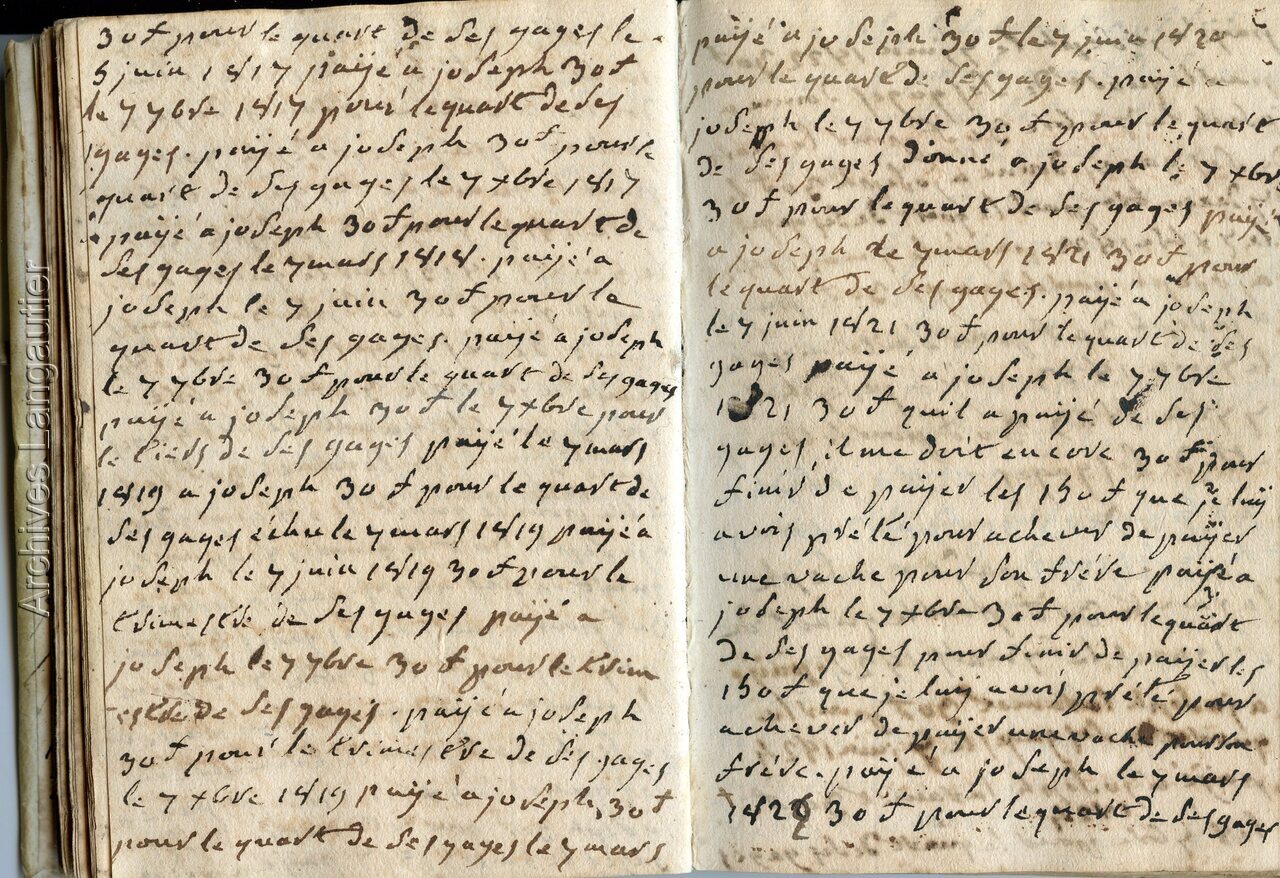 30 ₶ pour le quart de ses gages le
5 juin 1817 païjé a joseph 30 ₶
le 7 7bre 1817 pour le quart de ses
gages. païjé a joseph 30 ₶ pour le
quart de ses gages le 7 xbre 1817
païjé a joseph 30 ₶ pour le quart de
ses gages le 7 mars 1818. païjé a
joseph le 7 juin 30 ₶ pour le
quart de ses gages. païjé a joseph
le 7 7bre 30 ₶ pour le quart de ses gages
païjé a joseph 30 ₶ le 7 xbre pour
le tiers de ses gages païjé le 7 mars
1819 a joseph 30 ₶ pour le quart de
ses gages échu le 7 mars 1819 païjé a
joseph le 7 juin 1819 30 ₶ pour le
trimestre de ses gages païjé a
joseph le 7 7bre 30 ₶ pour le trim
estre de ses gages. païjé a joseph
30 ₶ pour le trimestre de ses gages
le 7 xbre 1819 païjé a joseph 30 ₶
pour le quart de ses gages le 7 mars
païjé a joseph 30 ₶ le 7 juin 1820
pour le quart de ses gages. païjé a
joseph le 7 7bre 30 ₶ pour le quart
de ses gages donné a joseph le 7 xbre
30 ₶ pour le quart de ses gages païjé
a joseph le 7 mars 1821 30 ₶ pour
le quart de ses gages. païjé a joseph
le 7 juin 1821 30 ₶ pour le quart de ses
gages païjé a joseph le 7 7bre
1821 30 ₶ quil a païjé de ses
gages, il me doit encore 30 ₶ pour
finir de païjer les 150 ₶ que je luij
avois prété pour achever de païjer
une vache pour son frére païjé a
joseph le 7 xbre 30 ₶ pour le quart
de ses gages pour finir de païjer les
150 ₶ que je luij avois prété pour
achever de païjer une vache pour son
frére. païjé a joseph le 7 mars
1822 30 ₶ pour le quart de ses gages
Archives Langautier